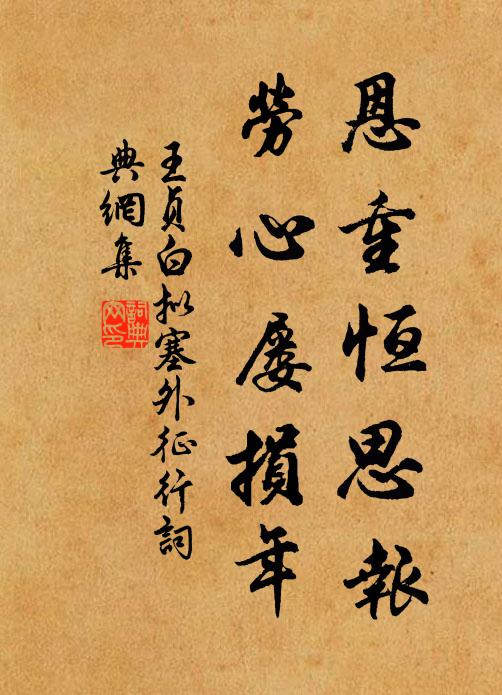 恩重恒思報
勞心屡損年
王貞白拟塞外征行詞
典網集
詞典
网印